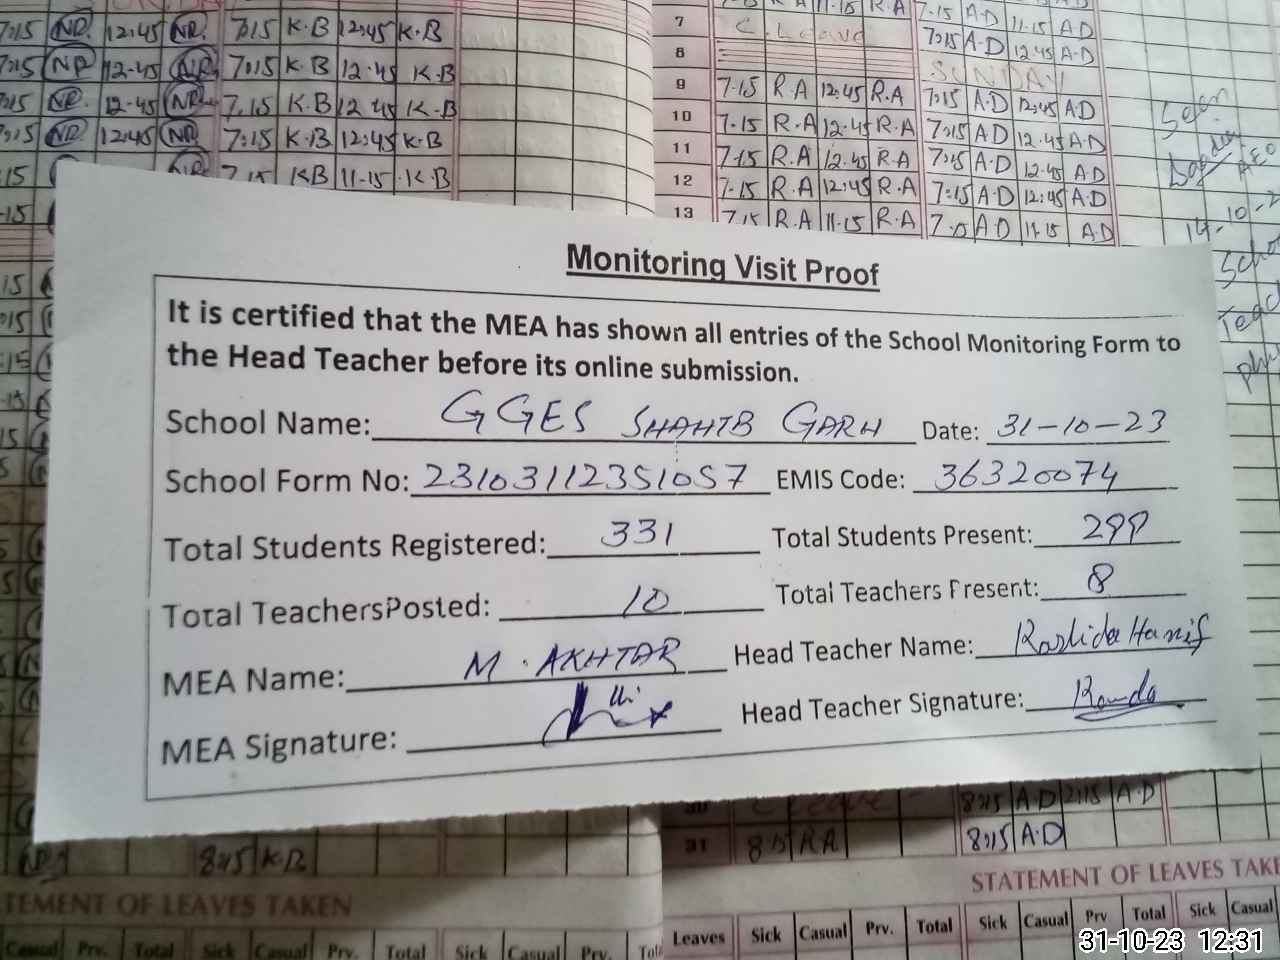 7:15 NR. 12:45 NR. 7:15 K.B 12:45 K.B
7:15 NR 12-45 NR 7:15 K.B 12.45 K.B
7:15 NR. 12-45 NR 7.15 K.B 12 45 K.B
7:15 NR 12:45 NR 7:15 K.B 12:45 K.B
:15 7 15 KB 11-15 K.B
7 C. Leave 7:15 A-D 12.45 A-D
8 SUNDAY
9 7-15 R.A 12:45 R.A 7:15 A.D 12:45 AD
10 7-15 R.A 12-45 R.A 7:15 AD 12.45 A.D
11 7-15 R.A 12.45 R.A 7:45 A.D 12.45 AD
12 7-15 R.A 12:45 R.A 7:15 A-D 12:45 A.D
13 7.15 R.A 11.15 R.A AD 11.15 A.D
Seen
AEO
14-10-2
Monitoring Visit Proof
It is certified that the MEA has shown all entries of the School Monitoring Form to
the Head Teacher before its online submission.
School Name: GGES SHAHIB GARH Date: 31-10-23
School Form No: 23103112351057 EMIS Code: 36320074
Total Students Registered: 331 Total Students Present: 299
Total TeachersPosted: 10 Total Teachers Present: 8
MEA Name: M. AKHTAR Head Teacher Name: Rashida Hanif
MEA Signature: Head Teacher Signature:
C Leave 8:15 A.D 2:15 A.D
31 8:15 RA 8:15 A.D
8:15 K.B
TEMENT OF LEAVES TAKEN
STATEMENT OF LEAVES TAKE
Casual Prv. Total Sick Casual Prv. Total Sick Casual Prv. Tot
Leaves Sick Casual Prv. Total Sick Casual Prv Total Sick Casual
31-10-23 12:31